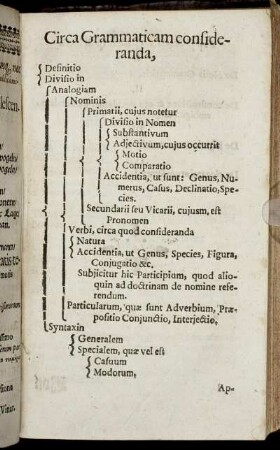 Circa Grammaticam conside-
randa,
Definitio
Divisio in
Analogiam
Nominis
Primarii, cujus notetur
Divisio in Nomen
Substantivum
Adjectivum, cujus occurrit
Motio
Comparatio
Accidentia, ut sunt: Genus, Nu-
merus, Casus, Declinatio, Spe-
cies.
Secundarii seu Vicarii, cujusm, est
Pronomen
Verbi, circa quod consideranda
Natura
Accidentia, ut Genus, Species, Figura,
Conjugatio &c.
Subjicitur hic Participium, quod alio-
quin ad doctrinam de nomine refe-
rendum.
Particularum, quæ sunt Adverbium, Præ-
positio Conjunctio, Interjectio,
Syntaxin
Generalem
Specialem, quæ vel est
Casuum
Modorum,
Ap-